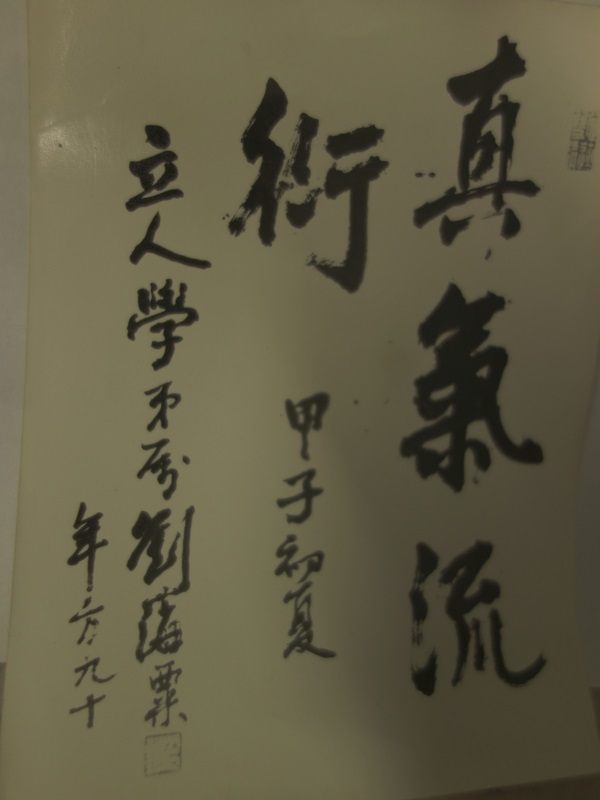 真氣流
衍
甲子初夏
立人學弟屬劉海粟
年方九十